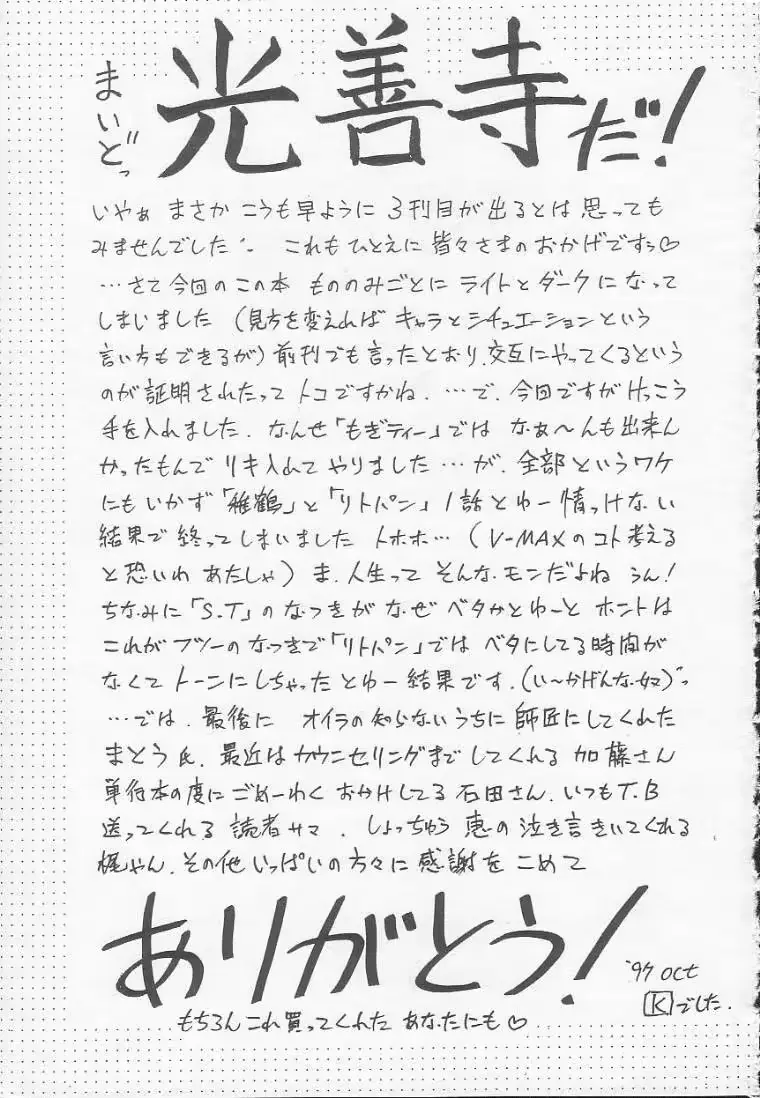 まいどっ
光善寺だ!
いやぁ まさか こうも早ように 3刊目が出るとは 思っても
みませんでした これもひとえに皆々さまのおかげですっ♡
…さて今回のこの本 もののみごとに ライトと ダークに なって
しまいました (見方を変えれば キャラとシチュエーションという
言い方もできるが) 前刊でも言ったとおり、交互にやってくるという
のが証明されたって トコですかね. …で、今回ですが けっこう
手を入れました. なんせ「もぎティー」では なぁ〜んも出来ん
かったもんで リキ入れて やりました …が、全部というワケ
にもいかず 「雅鶴」と「リトパン」1話とゆー情っけない
結果で終ってしまいました トホホ… (V-MAXのコト考える
と恐いわ あたしゃ) ま、人生って そんな.モンだよね うん!
ちなみに「S.T」の なつきが なぜ ベタかとゆーと ホントは
これが フツーの なつきで「リトパン」では ベタにしてる時間が
なくて トーンにしちゃった とゆー結果です. (い〜かげんな奴)
…では、最後に オイラの知らないうちに師匠にしてくれた
まとう氏、最近は カウンセリングまで してくれる 加藤さん
単行本の度に ごめーわく おかけしてる 石田さん、いつもT.B
送ってくれる 読者サマ、しょっちゅう 恵の泣き言きいてくれる
梶やん、その他いっぱいの方々に 感謝を こめて
ありがとう!
'97 oct
Kでした.
もちろん これ買ってくれた あなたにも♡